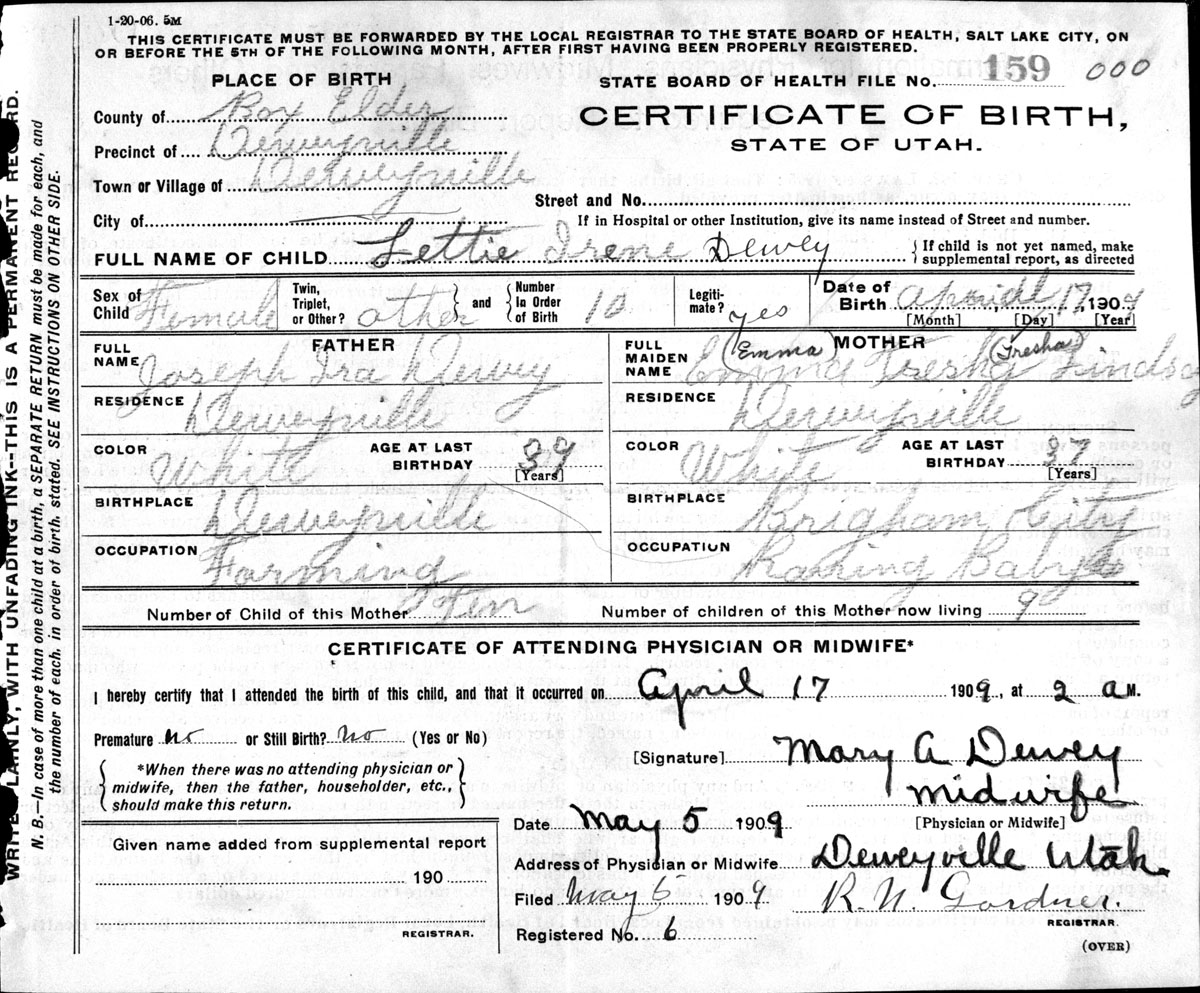 1-20-06. 5M
THIS CERTIFICATE MUST BE FORWARDED BY THE LOCAL REGISTRAR TO THE STATE BOARD OF HEALTH, SALT LAKE CITY, ON
OR BEFORE THE 5TH OF THE FOLLOWING MONTH, AFTER FIRST HAVING BEEN PROPERLY REGISTERED.
PLACE OF BIRTH
STATE BOARD OF HEALTH FILE NO. 159 000
County of Box Elder
CERTIFICATE OF BIRTH,
STATE OF UTAH.
Precinct of Deweyville
Town or Village of Deweyville
Street and No.
City of
If in Hospital or other Institution, give its name instead of Street and number.
FULL NAME OF CHILD Lettie Irene Dewey
If child is not yet named, make
supplemental report, as directed
Sex of Child Female
Twin, Triplet, or Other? other
and Number In Order of Birth 10
Legiti-mate? yes
Date of Birth April 17, 1909
[Month] [Day] [Year]
FATHER
FULL NAME Joseph Ira Dewey
RESIDENCE Deweyville
COLOR White
AGE AT LAST BIRTHDAY 39
[Years]
BIRTHPLACE Deweyville
OCCUPATION Farming
MOTHER
FULL MAIDEN NAME Emma Tresha Lindsay
(Emma) (Tresha)
RESIDENCE Deweyville
COLOR White
AGE AT LAST BIRTHDAY 37
[Years]
BIRTHPLACE Brigham City
OCCUPATION Raising Babys
Number of Child of this Mother Ten
Number of children of this Mother now living 9
CERTIFICATE OF ATTENDING PHYSICIAN OR MIDWIFE*
I hereby certify that I attended the birth of this child, and that it occurred on April 17 1909, at 2 a M.
Premature no or Still Birth? no (Yes or No)
*When there was no attending physician or
midwife, then the father, householder, etc.,
should make this return.
[Signature] Mary A Dewey
midwife
[Physician or Midwife]
Date May 5 1909
Address of Physician or Midwife Deweyville Utah.
Filed May 5 1909 R. N. Gardner.
REGISTRAR.
Registered No. 6
(OVER)
Given name added from supplemental report
190
REGISTRAR.
WRITE PLAINLY, WITH UNFADING INK--THIS IS A PERMANENT RECORD.
N. B.—In case of more than one child at a birth, a SEPARATE RETURN must be made for each, and
the number of each, in order of birth, stated. SEE INSTRUCTIONS ON OTHER SIDE.